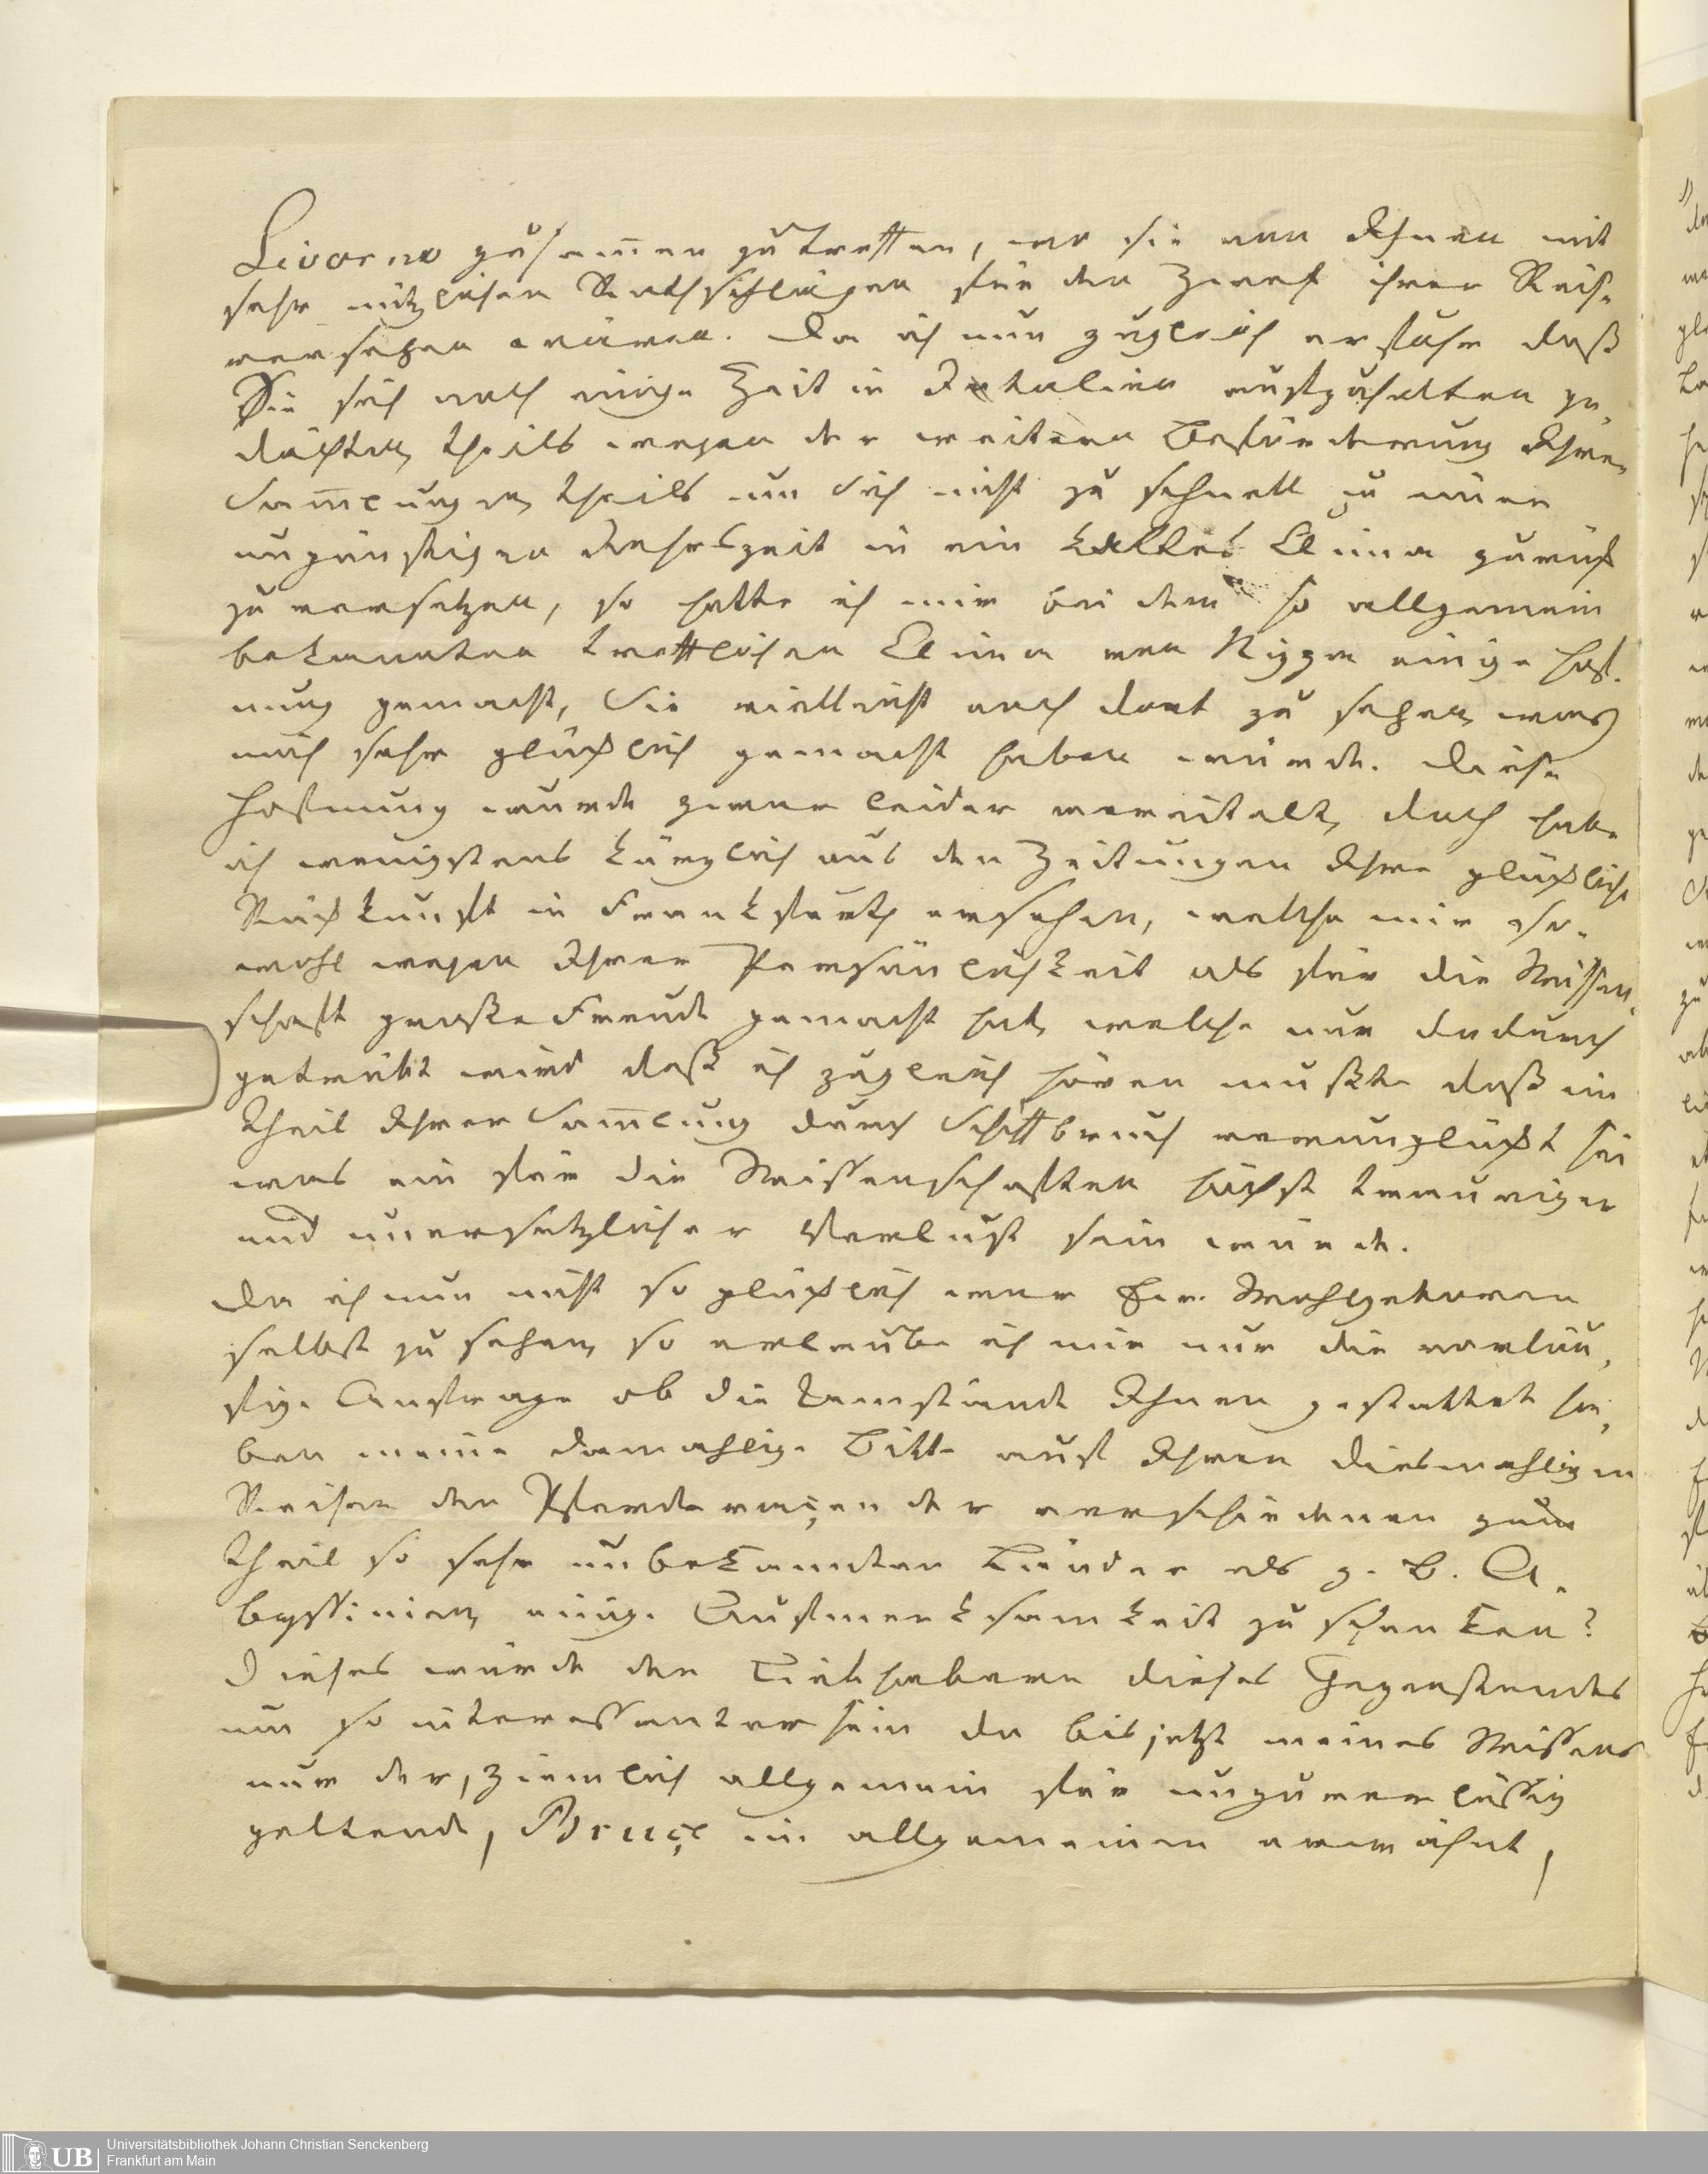 Livorno zusam̅en zu treffen, wo sie von Ihnen mit
sehr nützlichen Rathschlägen für den Zweck ihrer Reise
versehen wären. Da ich nun zugleich erfuhr daß
Sie sich noch einige Zeit in Italien aufzuhalten ge¬
dächten, theils wegen der weitern Beförderung Ihrer
Sam̅lungen, theils um Sich nicht zu schnell zu einer
ungünstigen Jahrszeit in ein kaltes Clima zurück
zu versetzen, so hatte ich mir bei dem so allgemein
bekannten trefflichen Clima von Nizza einige Hof¬
nung gemacht, Sie vielleicht auch dort zu sehen, was
mich sehr glücklich gemacht haben würde. Diese
Hofnung wurde zwar leider vereitelt, doch habe
ich wenigstens kürzlich aus den Zeitungen Ihre glückliche
Rückkunft in Frankfurth ersehen, welche mir so¬
wohl wegen Ihrer Persönlichkeit als für die Wissen¬
schaft große Freude gemacht hat, welche nur dadurch
getrübt wird daß ich zugleich hören mußte daß ein
Theil Ihrer Sam̅lung durch Schiffbruch verunglückt sei
was ein für die Wissenschaften höchst trauriger
und unersetzlicher Verlust sein würde.
Da ich nun nicht so glücklich war Ew. Wohlgeboren
selbst zu sehen, so erlaube ich mir nur die vorläu¬
fige Anfrage ob die Umstände Ihnen gestattet ha¬
ben meine damahlige Bitte auf Ihren diesmahligen
Reisen den Pferderaçen der verschiednen zum
Theil so sehr unbekannten Länder als z. B. A¬
byssinien, einige Aufmerksamkeit zu schenken?
Dieses würde den Liebhabern dieses Gegenstandes
um so interessanter sein da bis jetzt meines Wissens
nur der, ziemlich allgemein für unzuverlässig
geltende, Bruçe im allgemeinen erwähnt,
Universitätsbibliothek Johann Christian Senckenberg
Frankfurt am Main
UB